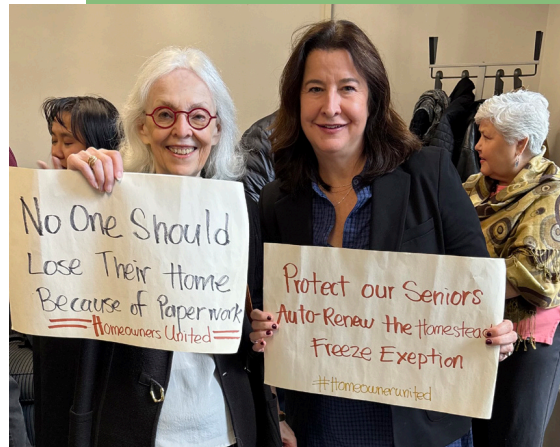 No One Should
Lose Their Home
Because of Paperwork
Homeowners United
Protect our Seniors
Auto-Renew the Homestead
Freeze Exeption
#Homeownerunited